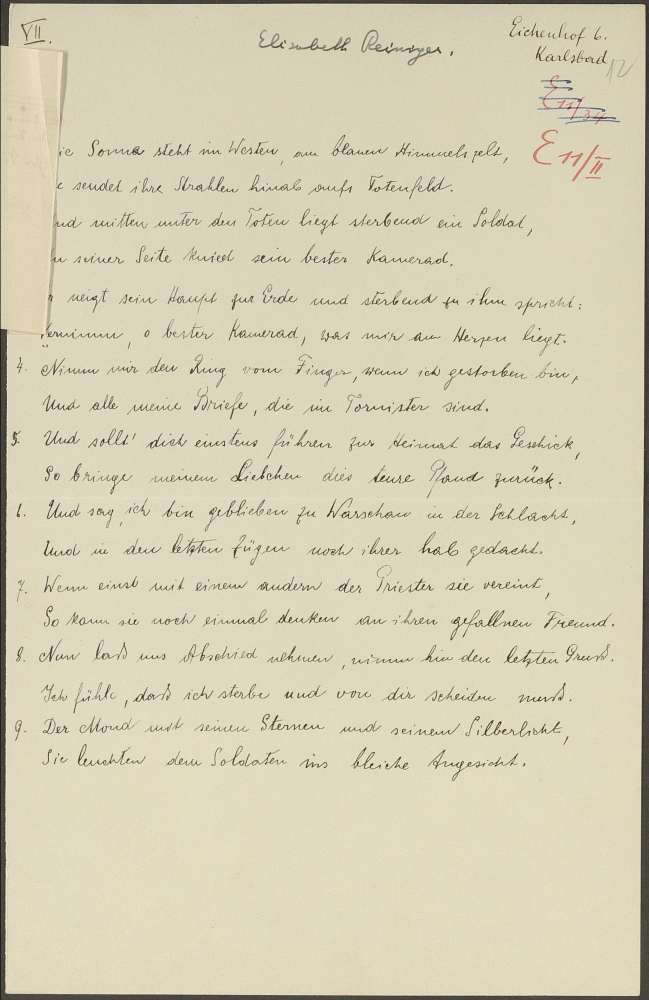 VII.
Elisabeth Reiniger.
Eichenhof 6.
Karlsbad
12
E 11/34
E 11/II
ie Sonne steht im Westen, am blauen Himmelszelt,
e sendet ihre Strahlen hinab aufs Totenfeld.
nd mitten unter den Toten liegt sterbend ein Soldat,
n seiner Seite kniet sein bester Kamerad.
r neigt sein Haupt zur Erde und sterbend zu ihm spricht:
"Vernimm, o bester Kamerad, was mir am Herzen liegt.
4. Nimm mir den Ring vom Finger, wenn ich gestorben bin,
Und alle meine Briefe, die im Tornister sind.
5. Und sollt' dich einstens führen zur Heimat das Geschick,
So bringe meinem Liebchen dies teure Pfand zurück.
6. Und sag, ich bin geblieben zu Warschau in der Schlacht,
Und in den letzten Zügen noch ihrer hab gedacht.
7. Wenn einst mit einem andern der Priester sie vereint,
So kann sie noch einmal denken an ihren gefallnen Freund.
8. Nun lass uns Abschied nehmen, nimm hin den letzten Gruss.
Ich fühle, dass ich sterbe und von dir scheiden muss.
9. Der Mond mit seinen Sternen und seinem Silberlicht,
Sie leuchten dem Soldaten ins bleiche Angesicht.